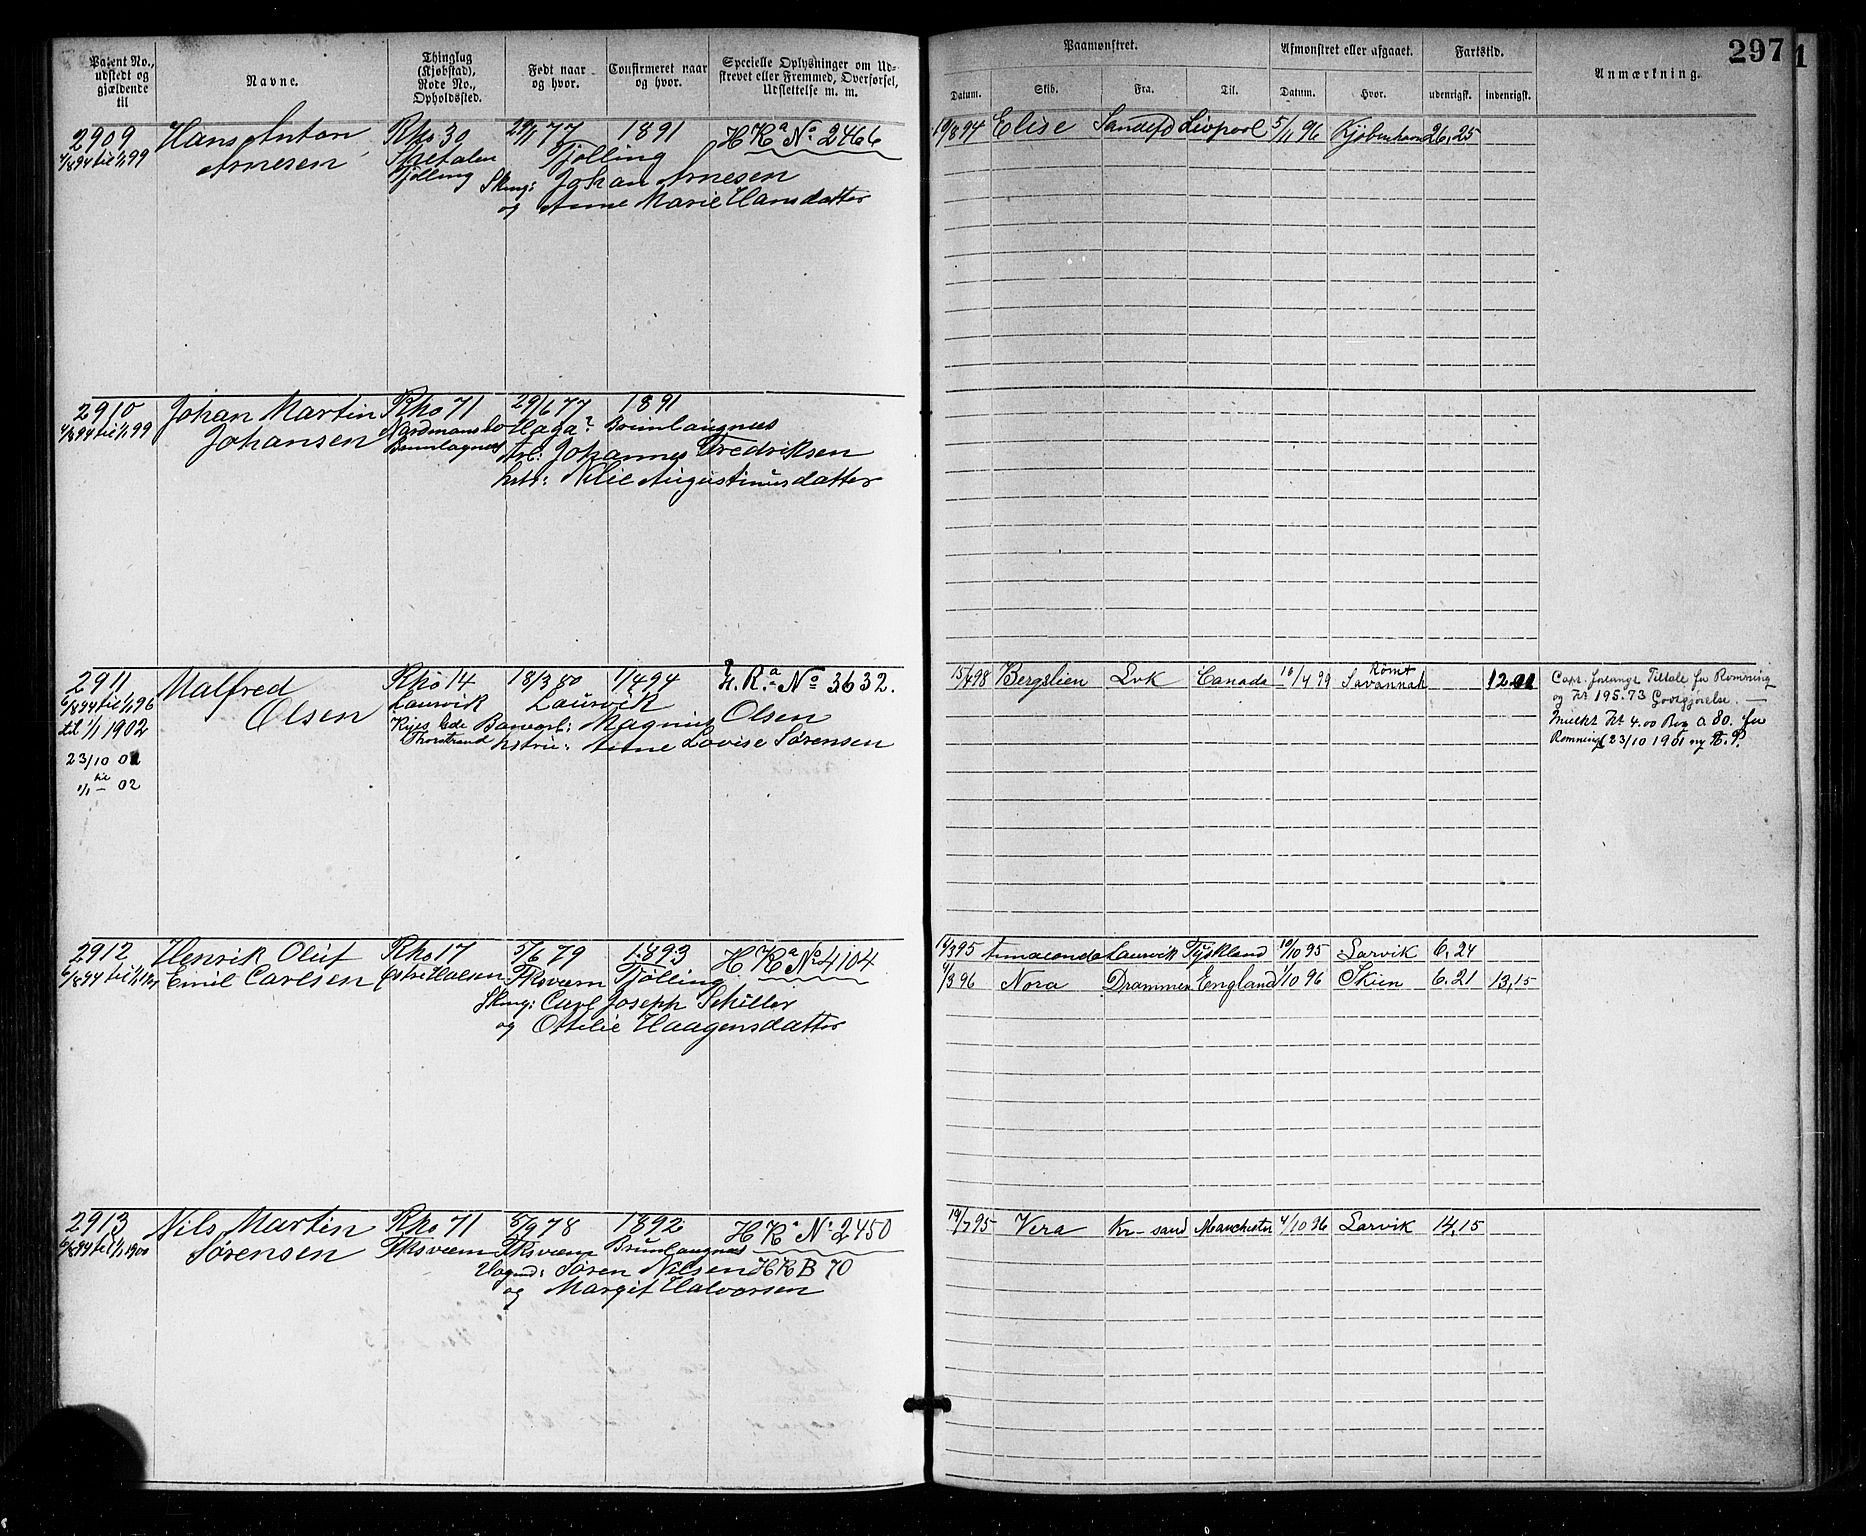 Patent No., udstedt og gjældende til
Navne.
Thinglug (Kjøbstad), Rode No., Opholdssted.
Født naar og hvor.
Confirmeret naar og hvor.
Specielle Oplysninger om Udskrevet eller Fremmed, Overførsel, Udslettelse m. m.
Paamønstret.
Afmønstret eller afgaaet.
Fartstid.
Anmærkning.
297
1
Datum.
Skib.
Fra.
Til.
Datum.
Hvor.
udenrigsk.
indenrigsk.
2909 Hans Anton Rko 30 29/1 77 1891 H Ra No 2466
6/8 94 til 1/1 99 Arnesen Tjølling Tjølling
Johan Arnesen
og Anne Marie Hansdatter
10/8 94 Elise Sandefd Livpool 5/11 96 Kjøbenhavn 26,25
2910 Johan Martin Rko 71 29/6 77 1891
6/8 94 til 1/1 99 Johansen Brunlagnes Haga? Brunlangnæs
Johannes Fredriksen
hstr: Nilie Augustinusdatter
2911 Malfred Rko 14 18/3 80 1/4 94 H. Ra. No 3632.
6/8 94 til 1/1 96 Olsen Laurvik Laurvik
til 1/1 1902 Magnus Olsen
Thorstrand hstrie: Anne Lovise Sørensen
23/10 01
til
1/1 — 02
15/7 98 Bergslien Lvk Canada 10/4 99 Rømt Savannah 12.
Capt. forlangt Tiltale for Rømning
og Kr 195.73 Godtgjørelse. —
Mulkt Kr 4.00 Bog A 80. for
Rømning 23/10 1901 ny
2912 Henrik Oluf Rko 17 5/6 79 1893 H. Ra No 4104
6/8 94 til Emil Carlsen Østre Halsen Tjølling
Carl Joseph Schiller
og Ottilie Haagensdatter
95 Laurvik Tyskland 10/10 95 Larvik 6,24
96 Nora Drammen England 1/10 96 Skien 6.21 13,15
2913 Nils Martin Rko 71 5/9 78 1892 H Ra No 2450
6/8 94 til 1/1 1900 Sørensen Brunlangnæs
Søren Nilsen H R B 70
og Margit Halvorsen
19/7 95 Vera Kr-sand Manchester 4/10 96 Larvik 14,15